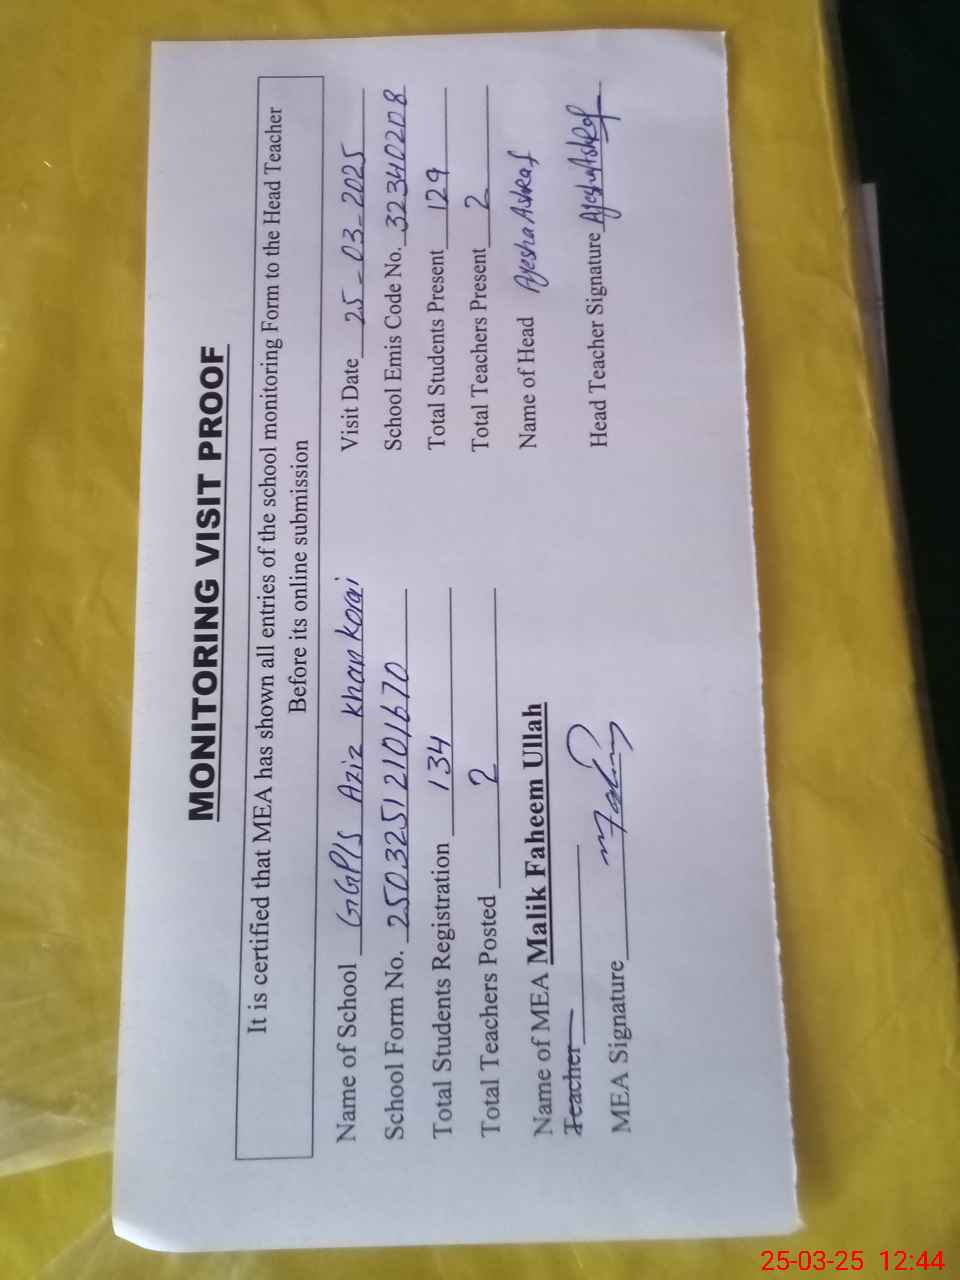 MONITORING VISIT PROOF
It is certified that MEA has shown all entries of the school monitoring Form to the Head Teacher
Before its online submission
Name of School GGP/S Aziz Khan Korai Visit Date 25-03-2025
School Form No. 25032512101670 School Emis Code No. 32340208
Total Students Registration 134 Total Students Present 129
Total Teachers Posted 2 Total Teachers Present 2
Name of MEA Malik Faheem Ullah Name of Head Ayesha Ashraf
Teacher
MEA Signature Head Teacher Signature Ayesha Ashraf
25-03-25 12:44